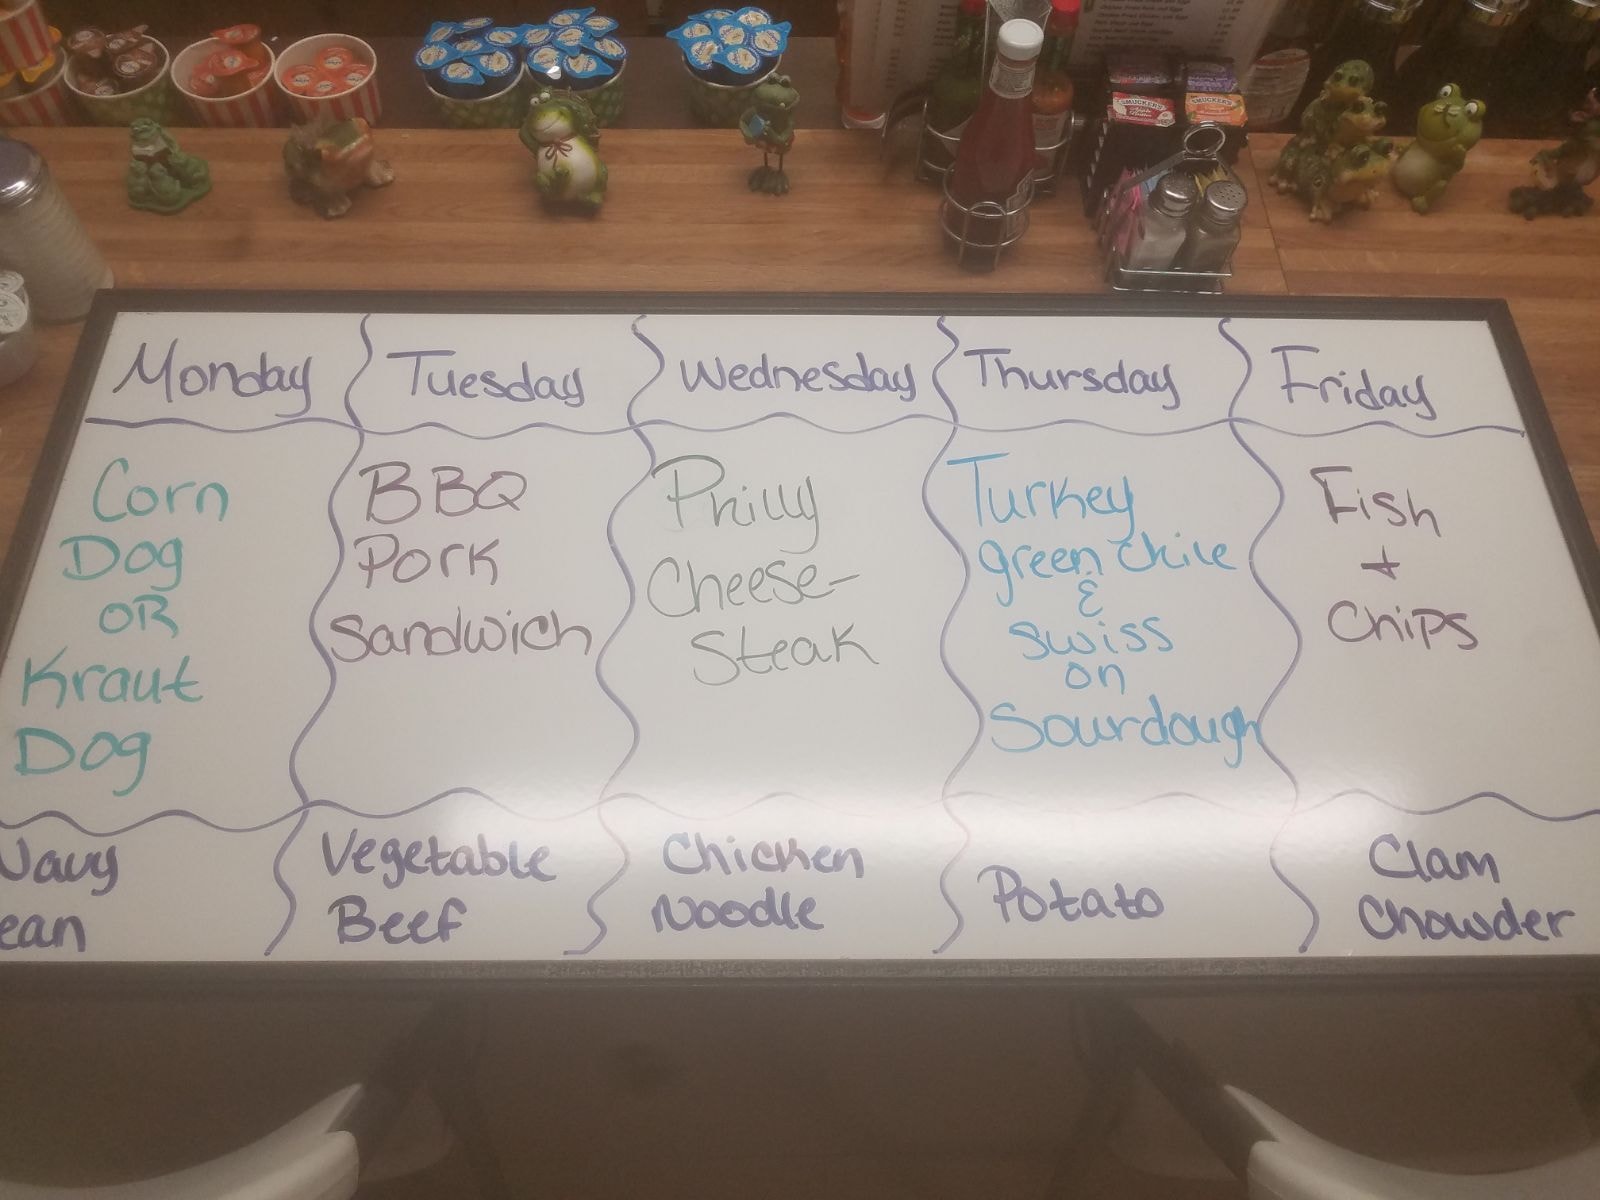 Monday
Tuesday
Wednesday
Thursday
Friday
Corn
Dog
OR
Kraut
Dog
BBQ
Pork
Sandwich
Philly
Cheese-
Steak
Turkey
green chile
&
Swiss
on
Sourdough
Fish
+
Chips
Navy
ean
Vegetable
Beef
Chicken
Noodle
Potato
Clam
Chowder
SMUCKER'S
SMUCKER'S